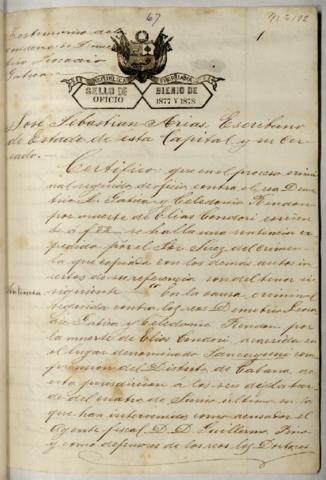 67
Nº 192
1
Testimonio de
condena de Deme
trio Leocadio
Gatica
REPUBLICA PERUANA
SELLO DE OFICIO
BIENIO DE 1877 Y 1878
José Sebastian Arias, Escribano
de Estado de esta Capital y su Cer
cado.
Certifico: que en el proceso crimi
nal seguido de oficio contra el reo Deme
trio L. Gatica y Celedonio Rendon
por muerte de Elias Condori corrien
te a f se halla una sentencia es
pedida por el Sor. Juez del Crimen
la que copiada con los demas autos in
sertos de su referencia son del tenor si
Sentencia
guiente En la causa criminal
seguida contra los reos Demetrio Leoca
dio Gatica y Celedonio Rendon por
la muerte de Elias Condori, acaecida en
el lugar denominado com
prension del Distrito de Cabana de
esta jurisdiccion a las seis de la tar
de del cuatro de Junio ultimo en la
que han intervenido como acusador el
Agente fiscal D. D. Guillermo Pino
y como defensores de los reos los Doctores